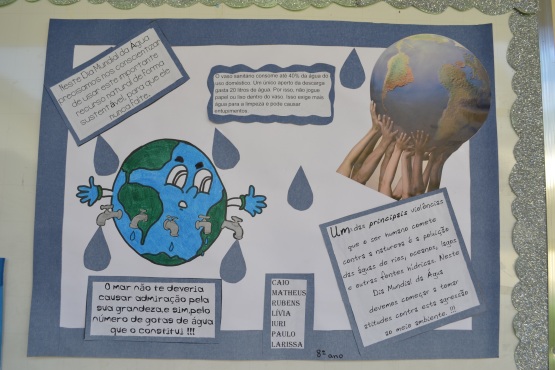 Neste Dia Mundial da Água
precisamos nos conscientizar
de usar este importante
recurso natural de forma
sustentável, para que ele
nunca falte.
O vaso sanitário consome até 40% da água de
uso doméstico. Um único aperto da descarga
gasta 20 litros de água. Por isso, não jogue
papel ou lixo dentro do vaso. Isso exige mais
água para a limpeza e pode causar
entupimentos.
Um das principais violências
que o ser humano comete
contra a natureza é a poluição
das águas de rios, oceanos, lagos
e outras fontes hídricas. Neste
Dia Mundial da Água
devemos começar a tomar
atitudes contra esta agressão
ao meio ambiente. !!!
O mar não te deveria
causar admiração pela
sua grandeza,e sim,pelo
número de gotas de água
que o constitui !!!
CAIO
MATHEUS
RUBENS
LÍVIA
IURI
PAULO
LARISSA
8º ano